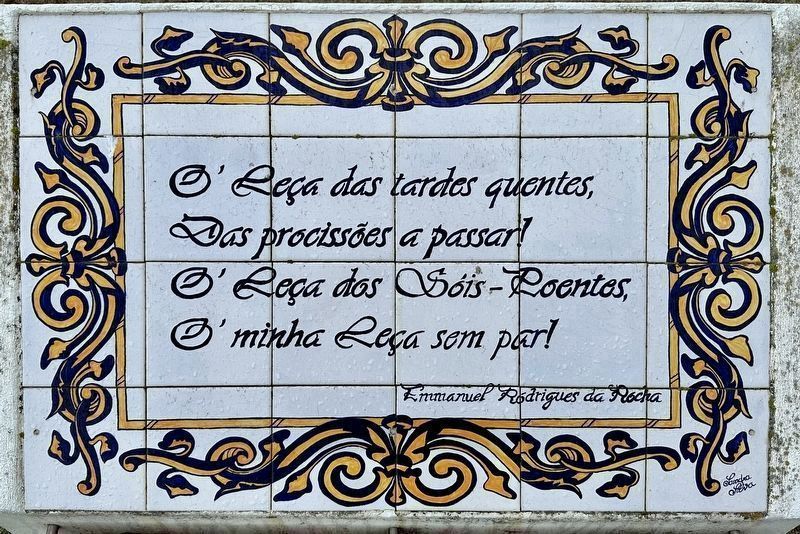 O' Leça das tardes quentes,
Das procissões a passar!
O' Leça dos Sóis-Poentes,
O' minha Leça sem par!
Emmanuel Rodrigues da Rocha
Sandra
Silva